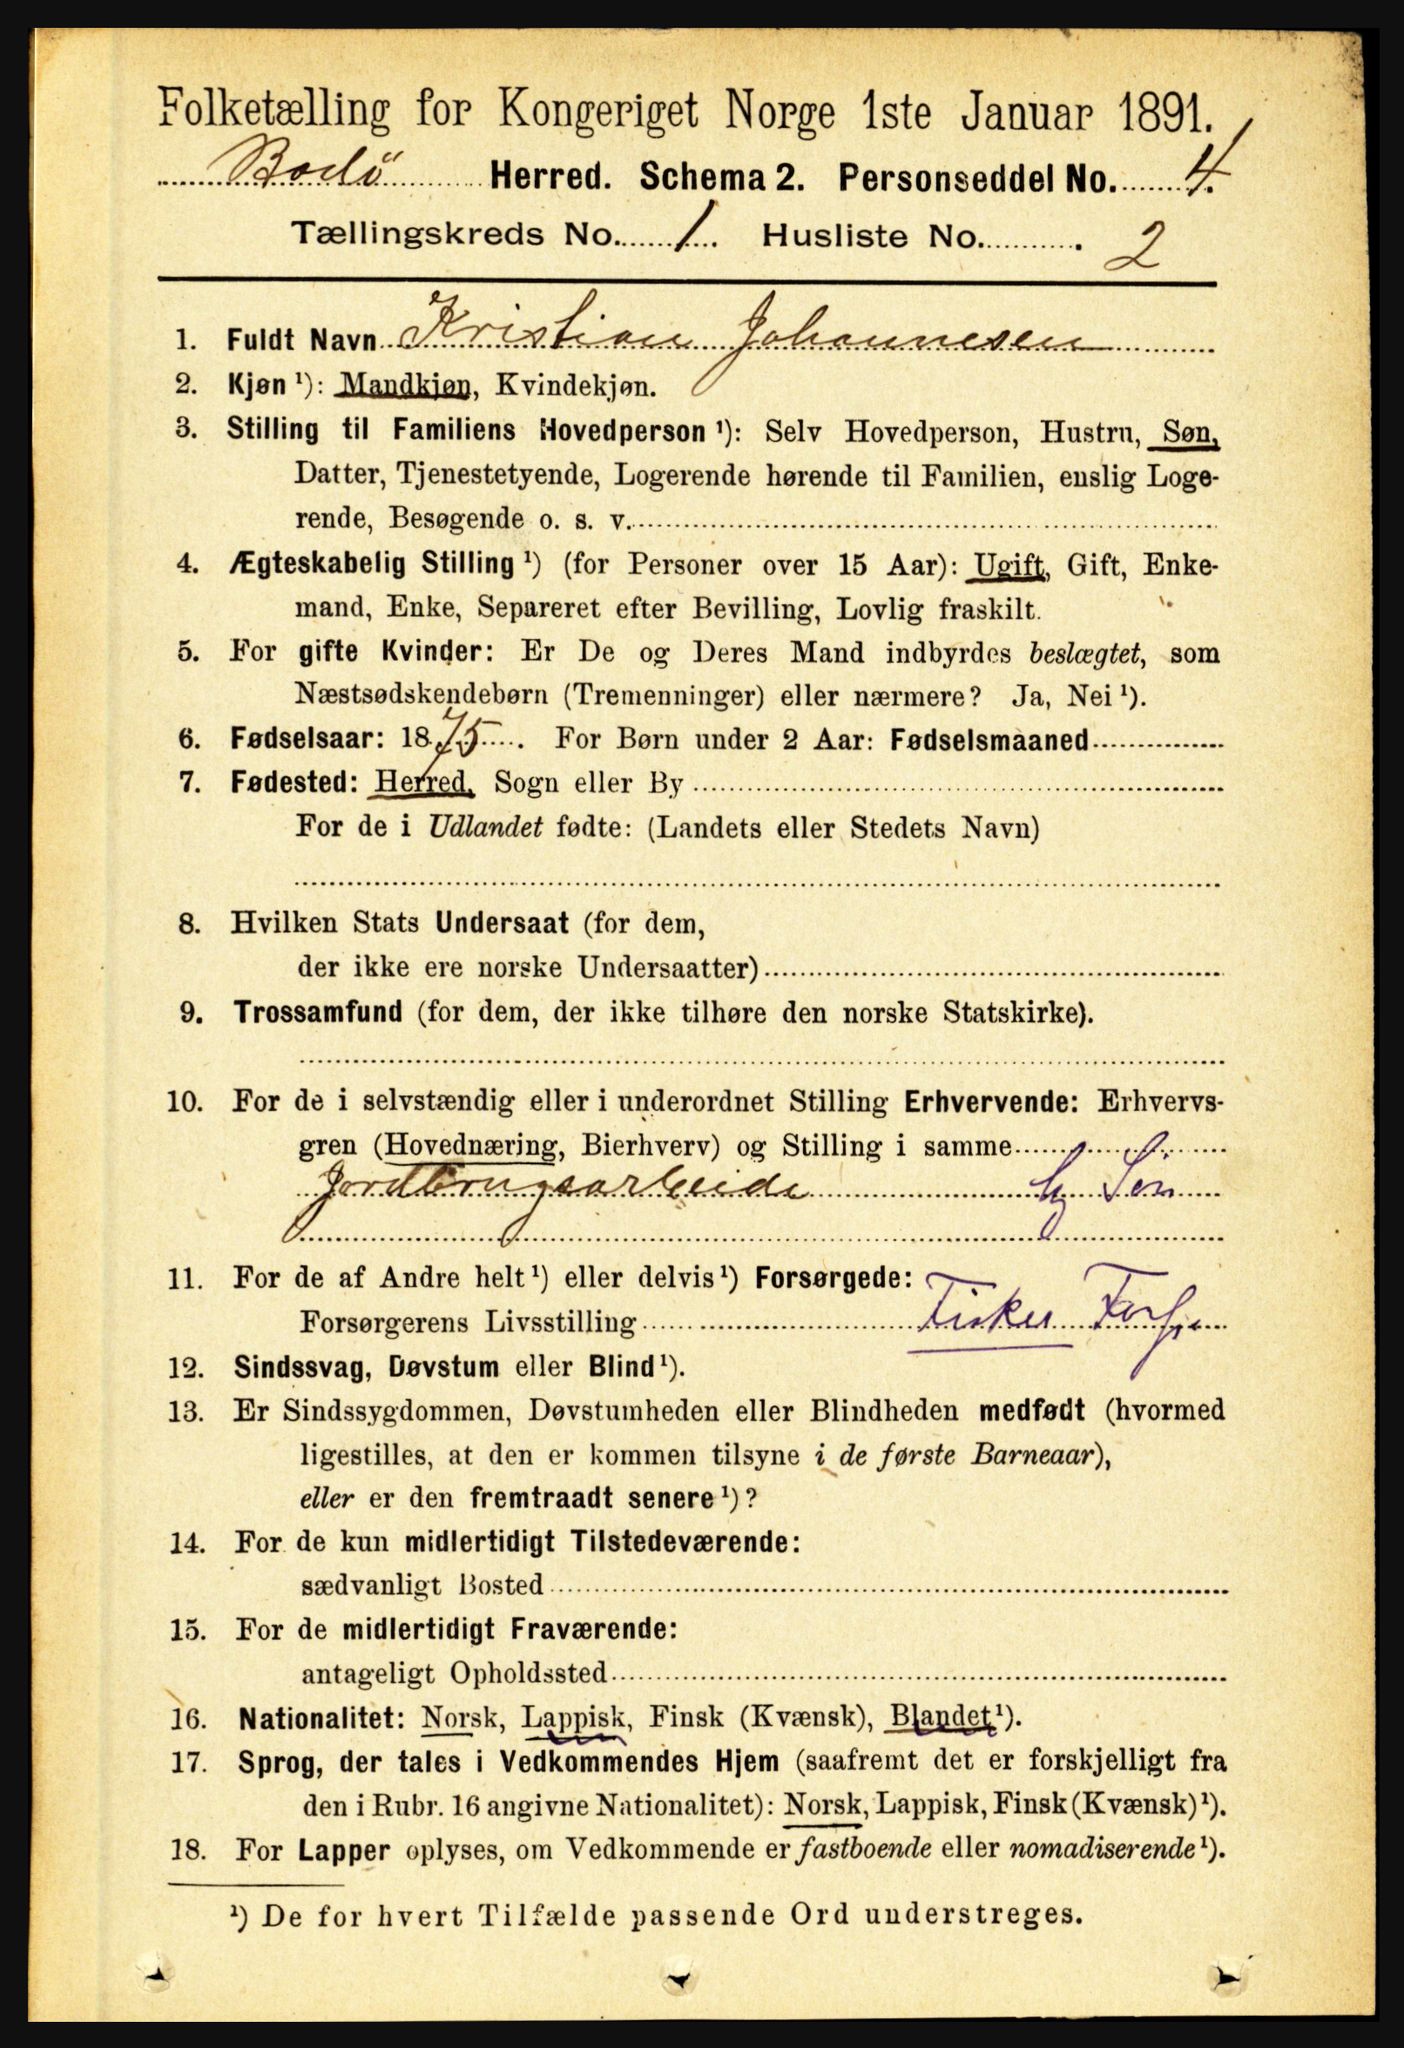 Folketælling for Kongeriget Norge 1ste Januar 1891.
Bodø Herred. Schema 2. Personseddel No. 4.
Tællingskreds No. 1. Husliste No. 2
1. Fuldt Navn Kristian Johannesen
2. Kjøn ¹): Mandkjøn, Kvindekjøn.
3. Stilling til Familiens Hovedperson ¹): Selv Hovedperson, Hustru, Søn,
Datter, Tjenestetyende, Logerende hørende til Familien, enslig Loge-
rende, Besøgende o. s. v.
4. Ægteskabelig Stilling ¹) (for Personer over 15 Aar): Ugift, Gift, Enke-
mand, Enke, Separeret efter Bevilling, Lovlig fraskilt.
5. For gifte Kvinder: Er De og Deres Mand indbyrdes beslægtet, som
Næstsødskendebørn (Tremenninger) eller nærmere? Ja, Nei ¹).
6. Fødselsaar: 1875. For Børn under 2 Aar: Fødselsmaaned
7. Fødested: Herred, Sogn eller By
For de i Udlandet fødte: (Landets eller Stedets Navn)
8. Hvilken Stats Undersaat (for dem,
der ikke ere norske Undersaatter)
9. Trossamfund (for dem, der ikke tilhøre den norske Statskirke).
10. For de i selvstændig eller i underordnet Stilling Erhvervende: Erhvervs-
gren (Hovednæring, Bierhverv) og Stilling i samme
Jordbrugsarbeide Søn
11. For de af Andre helt ¹) eller delvis ¹) Forsørgede:
Forsørgerens Livsstilling Fisker
12. Sindssvag, Døvstum eller Blind ¹).
13. Er Sindssygdommen, Døvstumheden eller Blindheden medfødt (hvormed
ligestilles, at den er kommen tilsyne i de første Barneaar),
eller er den fremtraadt senere ¹)?
14. For de kun midlertidigt Tilstedeværende:
sædvanligt Bosted
15. For de midlertidigt Fraværende:
antageligt Opholdssted
16. Nationalitet: Norsk, Lappisk, Finsk (Kvænsk), Blandet ¹).
17. Sprog, der tales i Vedkommendes Hjem (saafremt det er forskjelligt fra
den i Rubr. 16 angivne Nationalitet): Norsk, Lappisk, Finsk (Kvænsk) ¹).
18. For Lapper oplyses, om Vedkommende er fastboende eller nomadiserende ¹).
¹) De for hvert Tilfælde passende Ord understreges.